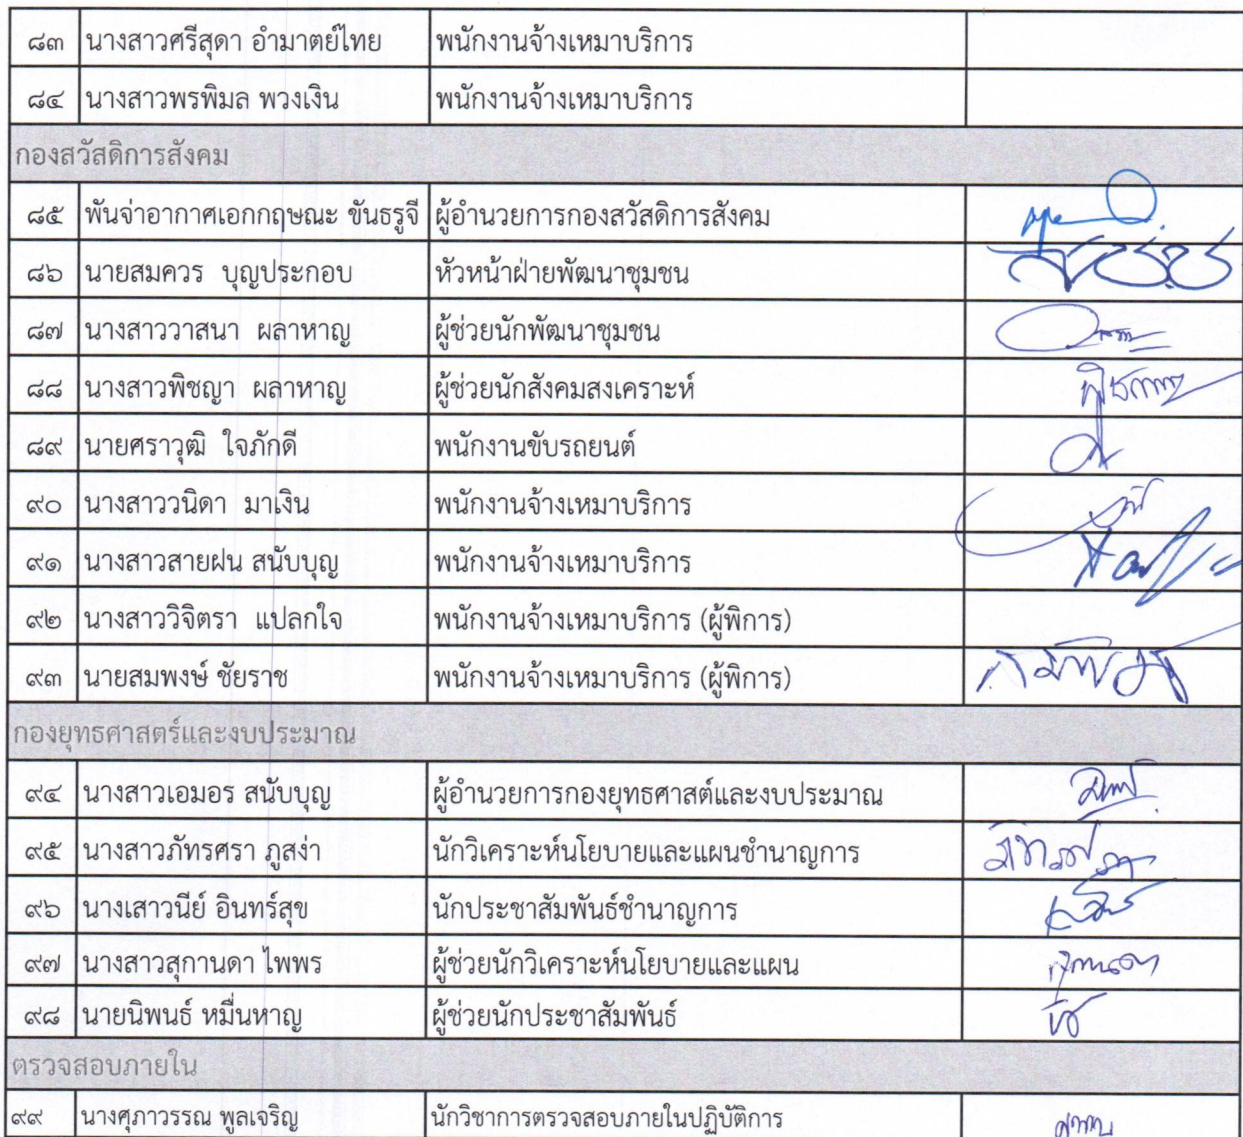 ๘๓ นางสาวศรีสุดา อำมาตย์ไทย พนักงานจ้างเหมาบริการ
๘๔ นางสาวพรพิมล พวงเงิน พนักงานจ้างเหมาบริการ
กองสวัสดิการสังคม
๘๕ พันจ่าอากาศเอกกฤษณะ ขันธรูจี ผู้อำนวยการกองสวัสดิการสังคม
๘๖ นายสมควร บุญประกอบ หัวหน้าฝ่ายพัฒนาชุมชน
๘๗ นางสาววาสนา ผลาหาญ ผู้ช่วยนักพัฒนาชุมชน
๘๘ นางสาวพิชญา ผลาหาญ ผู้ช่วยนักสังคมสงเคราะห์
๘๙ นายศราวุฒิ ใจภักดี พนักงานขับรถยนต์
๙๐ นางสาววนิดา มาเงิน พนักงานจ้างเหมาบริการ
๙๑ นางสาวสายฝน สนับบุญ พนักงานจ้างเหมาบริการ
๙๒ นางสาววิจิตรา แปลกใจ พนักงานจ้างเหมาบริการ (ผู้พิการ)
๙๓ นายสมพงษ์ ชัยราช พนักงานจ้างเหมาบริการ (ผู้พิการ)
กองยุทธศาสตร์และงบประมาณ
๙๔ นางสาวเอมอร สนับบุญ ผู้อำนวยการกองยุทธศาสต์และงบประมาณ
๙๕ นางสาวภัทรศรา ภูสง่า นักวิเคราะห์นโยบายและแผนชำนาญการ
๙๖ นางเสาวนีย์ อินทร์สุข นักประชาสัมพันธ์ชำนาญการ
๙๗ นางสาวสุกานดา ไพพร ผู้ช่วยนักวิเคราะห์นโยบายและแผน
๙๘ นายนิพนธ์ หมื่นหาญ ผู้ช่วยนักประชาสัมพันธ์
ตรวจสอบภายใน
๙๙ นางศุภาวรรณ พูลเจริญ นักวิชาการตรวจสอบภายในปฏิบัติการ